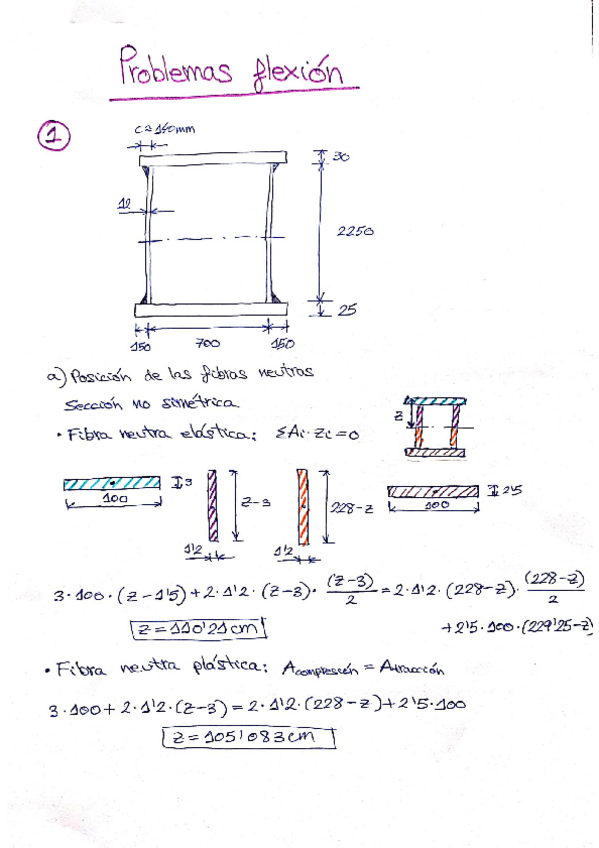 Problemas flexión
1
c≈140mm
30
12
2250
25
150 700 150
a) Posición de las fibras neutras
Sección no simétrica
• Fibra neutra elástica: ΣAi·zi=0
z
100
3
z-3
1'2
228-z
1'2
100
2'5
3·100·(z-1'5)+2·1'2·(z-3)·(z-3)/2=2·1'2·(228-z)·(228-z)/2
+2'5·100·(229'25-z)
z=110'21cm
• Fibra neutra plástica: Acompresión = Atracción
3·100+2·1'2·(z-3)=2·1'2·(228-z)+2'5·100
z=105'083cm